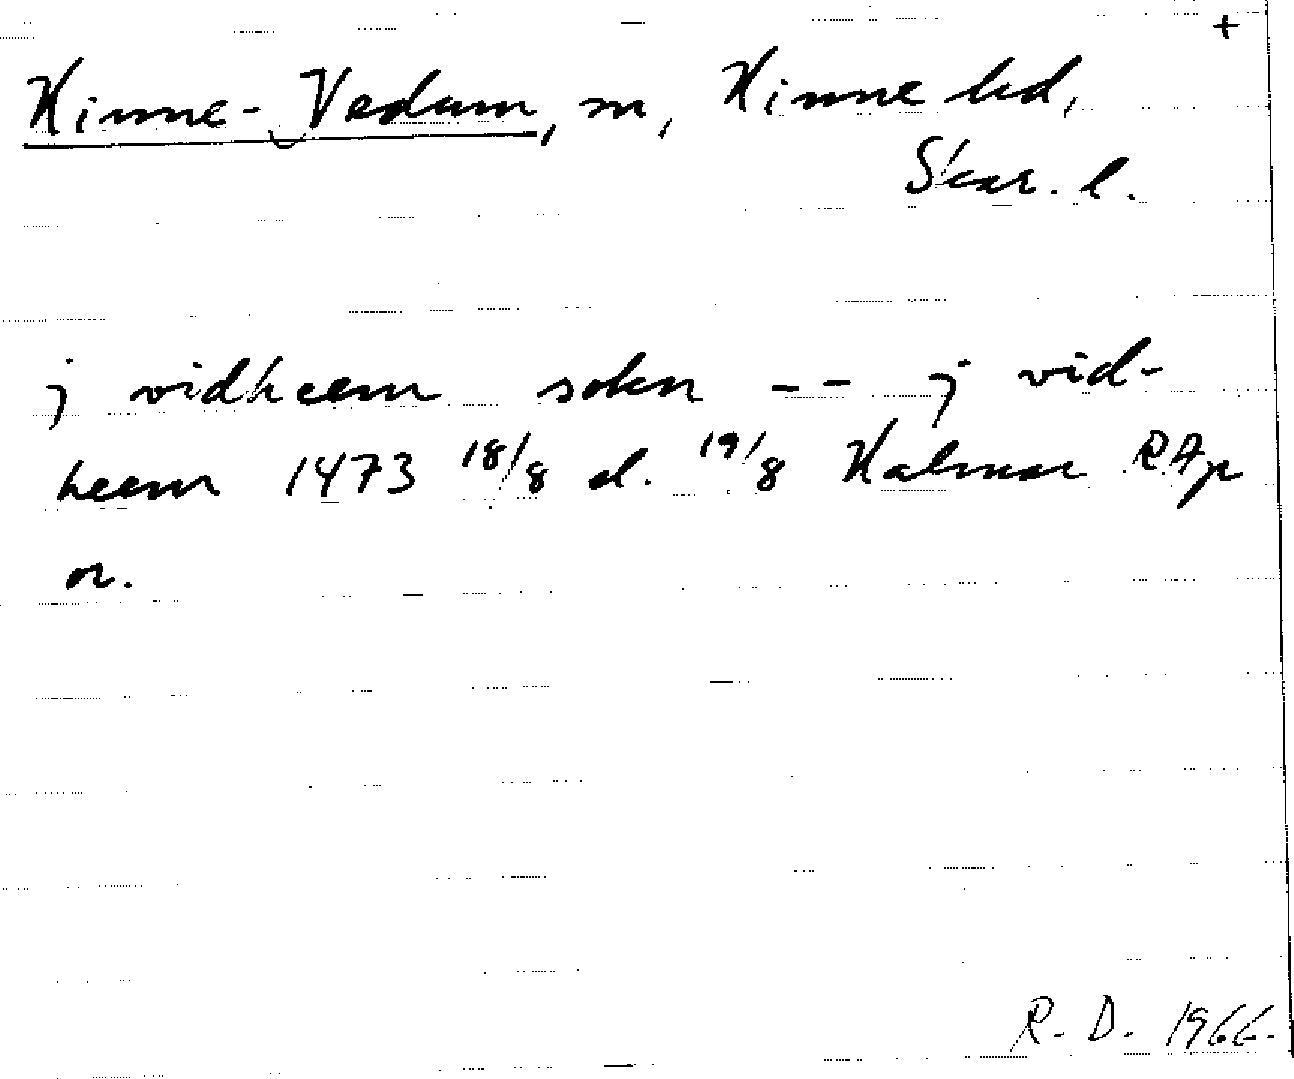 +
Kinne-Vedum, sn, Kinne hd,
Skar. l.
j vidheem sokn -- j vid-
heem 1473 18/8 el. 19/8 Kalmar RAp
or.
R. D. 1966.